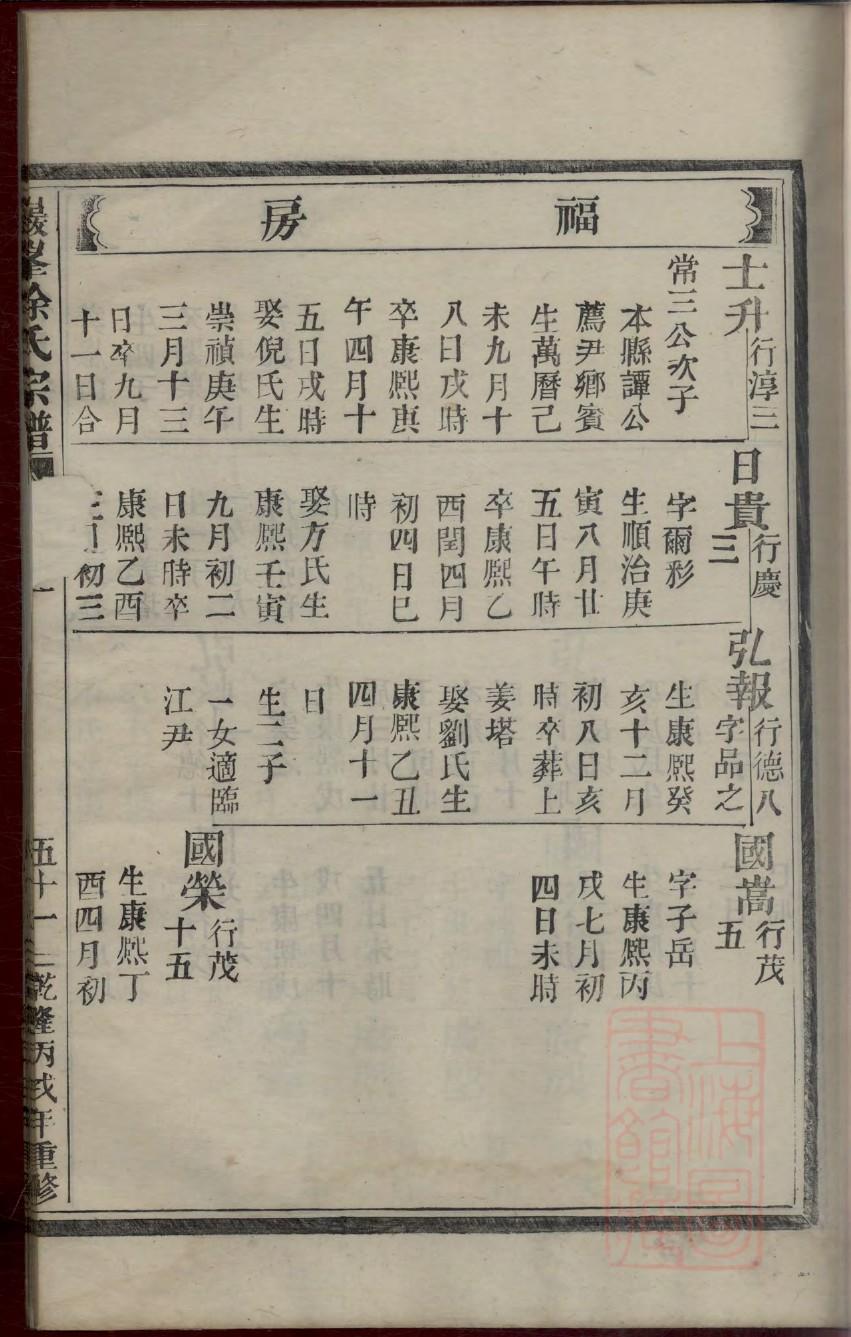 福房
士升行淳三
常三公次子
本縣譚公
薦尹鄉賓
生萬曆己
未九月十
八日戌時
卒康熙庚
午四月十
五日戌時
娶倪氏生
崇禎庚午
三月十三
日卒九月
十一日合
日貴行慶三
字爾彩
生順治庚
寅八月廿
五日午時
卒康熙乙
酉閏四月
初四日巳
時
娶方氏生
康熙壬寅
九月初二
日未時卒
康熙乙酉
初三
弘報行德八字品之
生康熙癸
亥十二月
初八日亥
時卒葬上
姜塔
娶劉氏生
康熙乙丑
四月十一
日
生二子
一女適臨
江尹
國嵩行茂五
字子岳
生康熙丙
戌七月初
四日未時
國榮行茂十五
生康熙丁
酉四月初
峯徐氏宗譜
一
五十一
乾隆丙戌年重修
上海圖書館藏